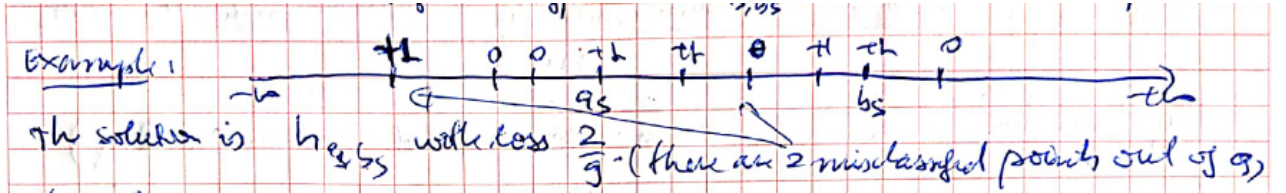 Example: +1 0 0 +1 +1 0 +1 +1 0
-∞ as bs +∞
The solution is h as, bs with loss 2/9. (there are 2 misclassified points out of 9)